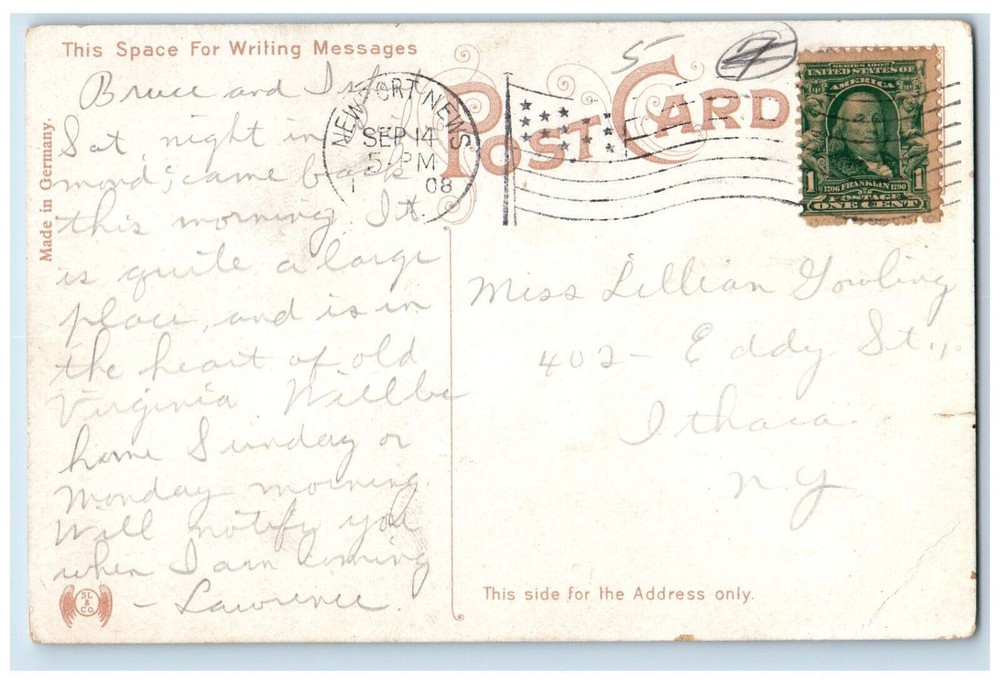 This Space For Writing Messages
Bruce and I
Sat. night in
mond; came back
this morning. It
is quite a large
place, and is in
the heart of old
Virginia Will be
home Sunday or
Monday morning.
Will notify you
when I am coming
- Lawrence.
Made in Germany.
SL & CO.
POST CARD
5
7
NEWPORT NEWS
SEP 14
5-PM
1908
SERIES 1902
UNITED STATES OF AMERICA
1 1
1706 FRANKLIN 1790
POSTAGE
ONE CENT
Miss Lillian Gowling
402 - Eddy St.,
Ithaca
N.Y
This side for the Address only.